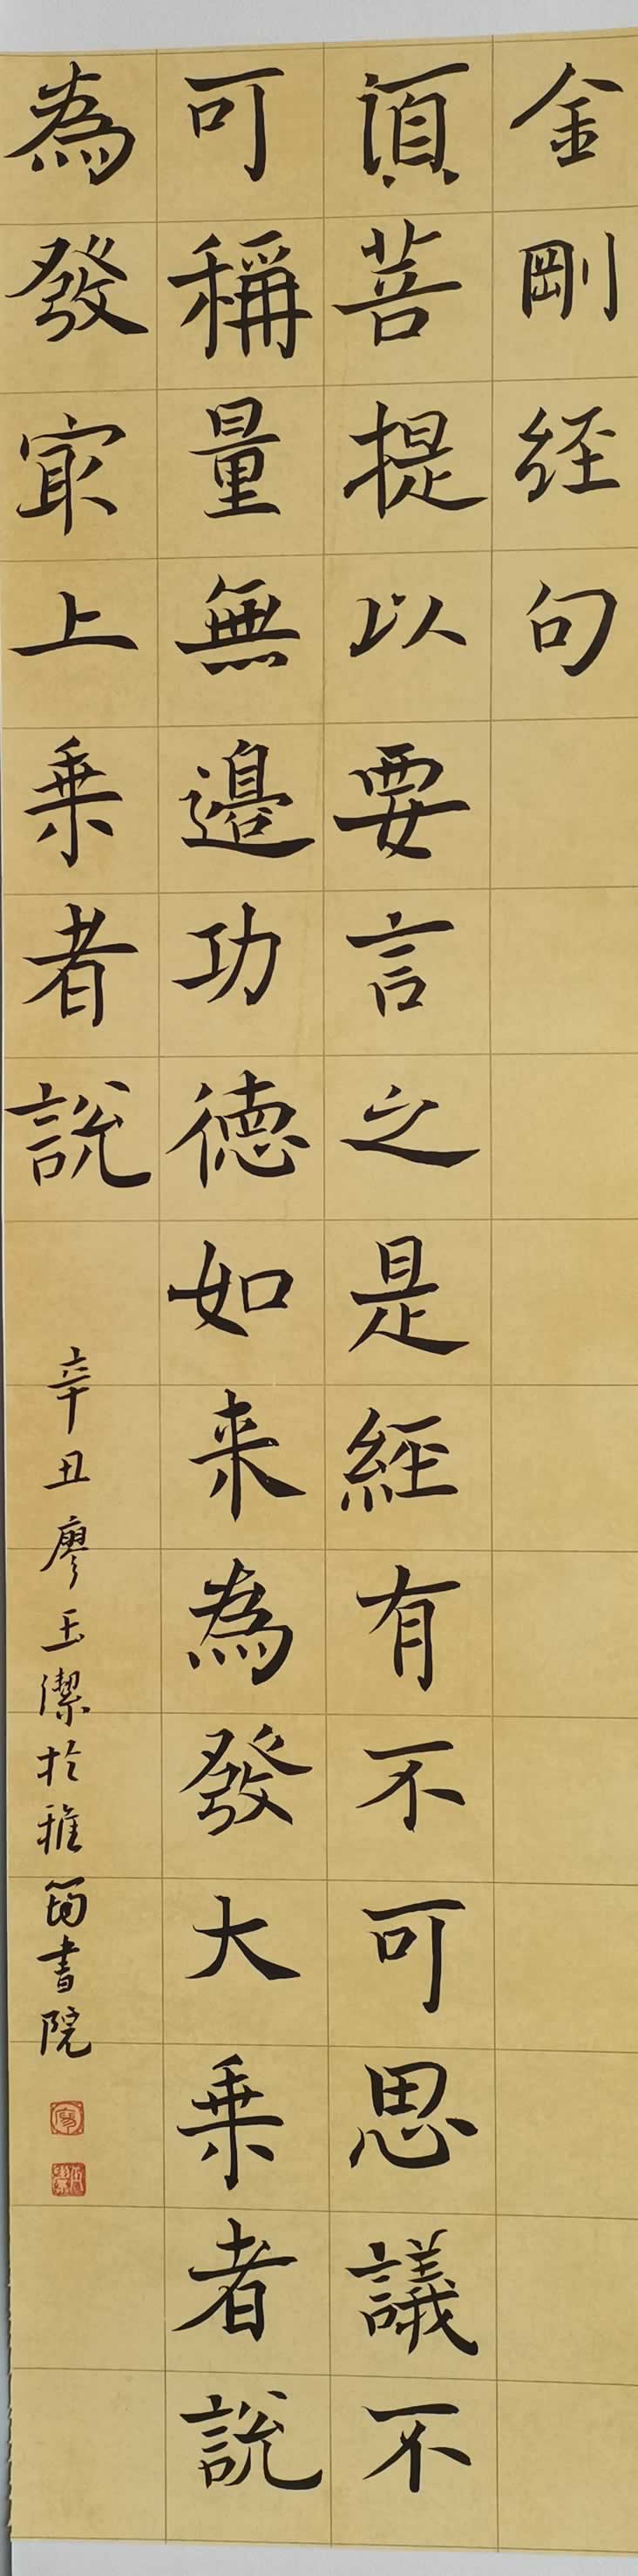 金剛经句
湏菩提以要言之是經有不可思議不
可稱量無邊功德如来為發大乗者說
為發冣上乗者說
辛丑廖玉潔於稚筠書院